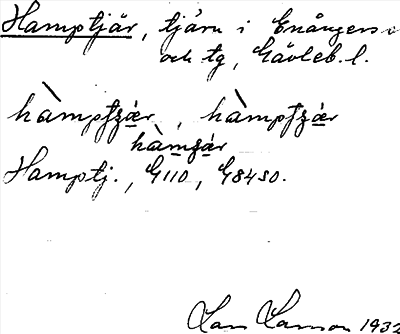 Hamptjär, tjärn i Enångers s
och tg, Gävleb. l.
hàmptʒær, hàmptʒær
hàmʒár
Hamptj., G110, G8430.
Lars Larsson 1932